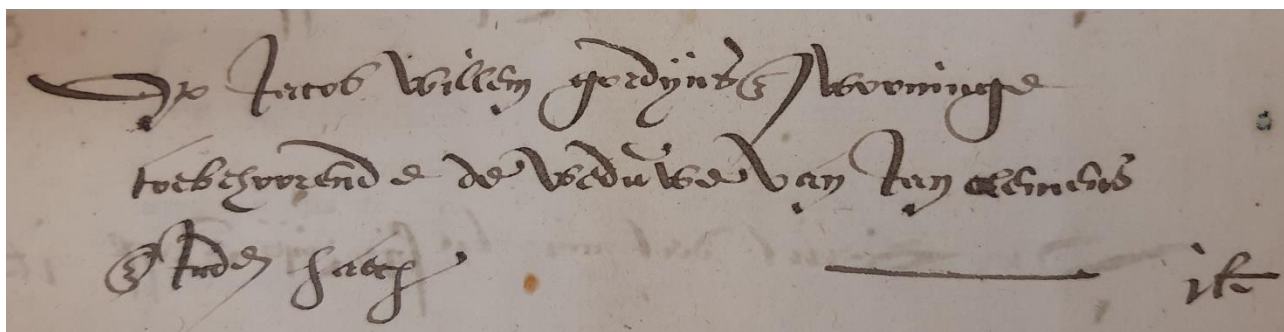 Op Jacob Willem gordijnsz wooninge
toebehoorende de weduwe van Jan clements
z Inden haech